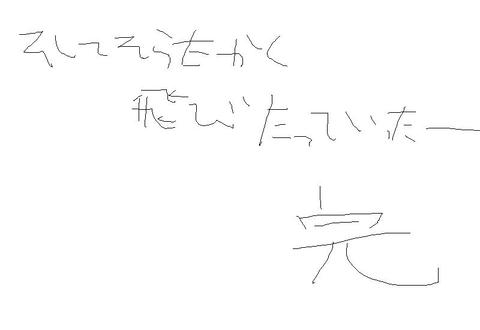 そしてそらたかく
飛びたっていったー
完